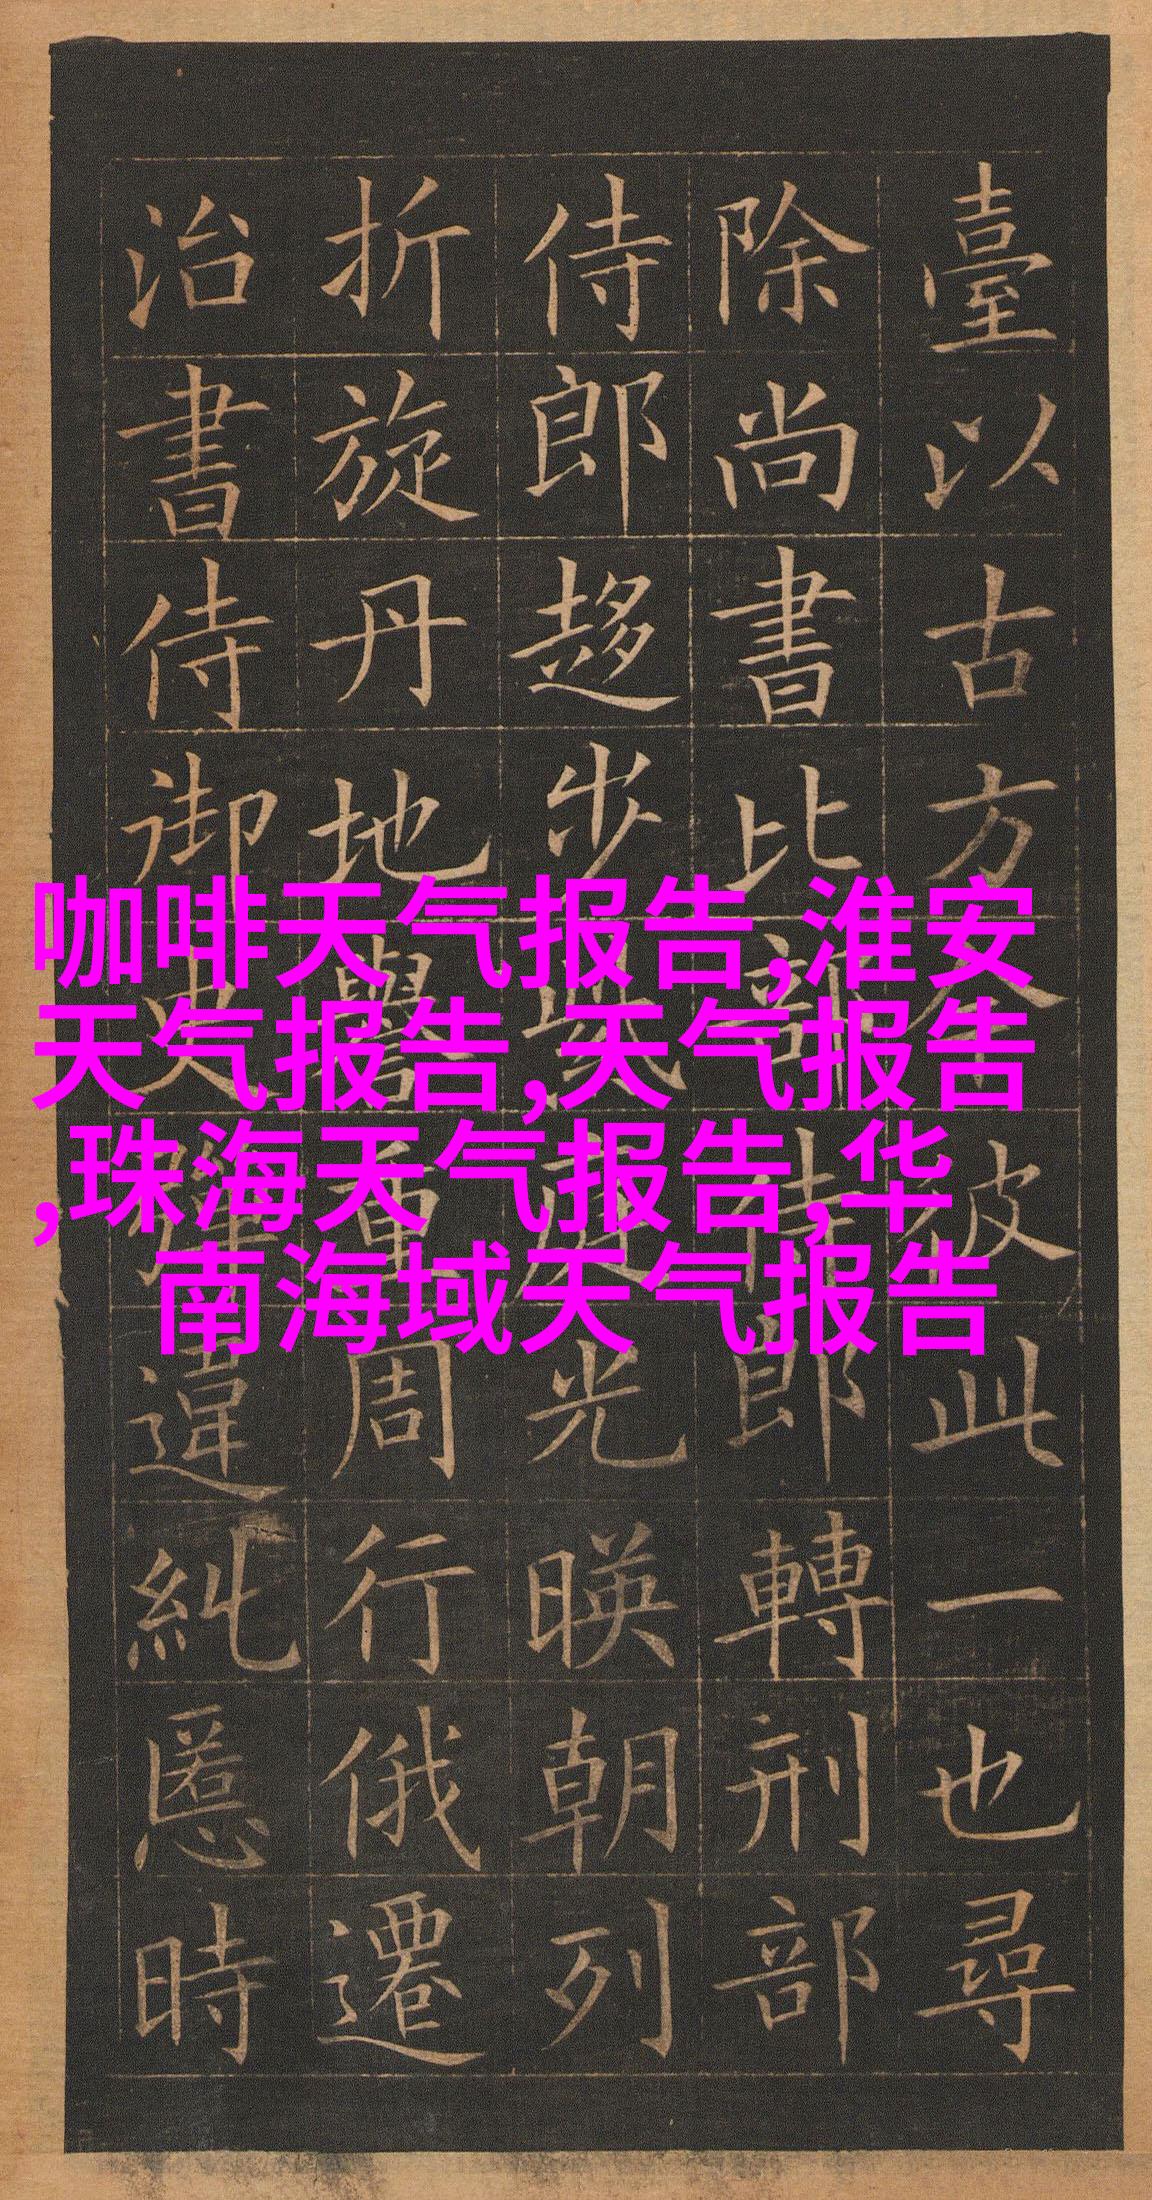 臺以古方今彼此一也尋
除尚書比部侍郎轉刑部
侍郎趍步紫庭光暎朝列
折旋丹地譽重周行俄遷
治書侍御史彈違糺慝時
咖啡天气报告,淮安
天气报告,天气报告
,珠海天气报告,华
南海域天气报告